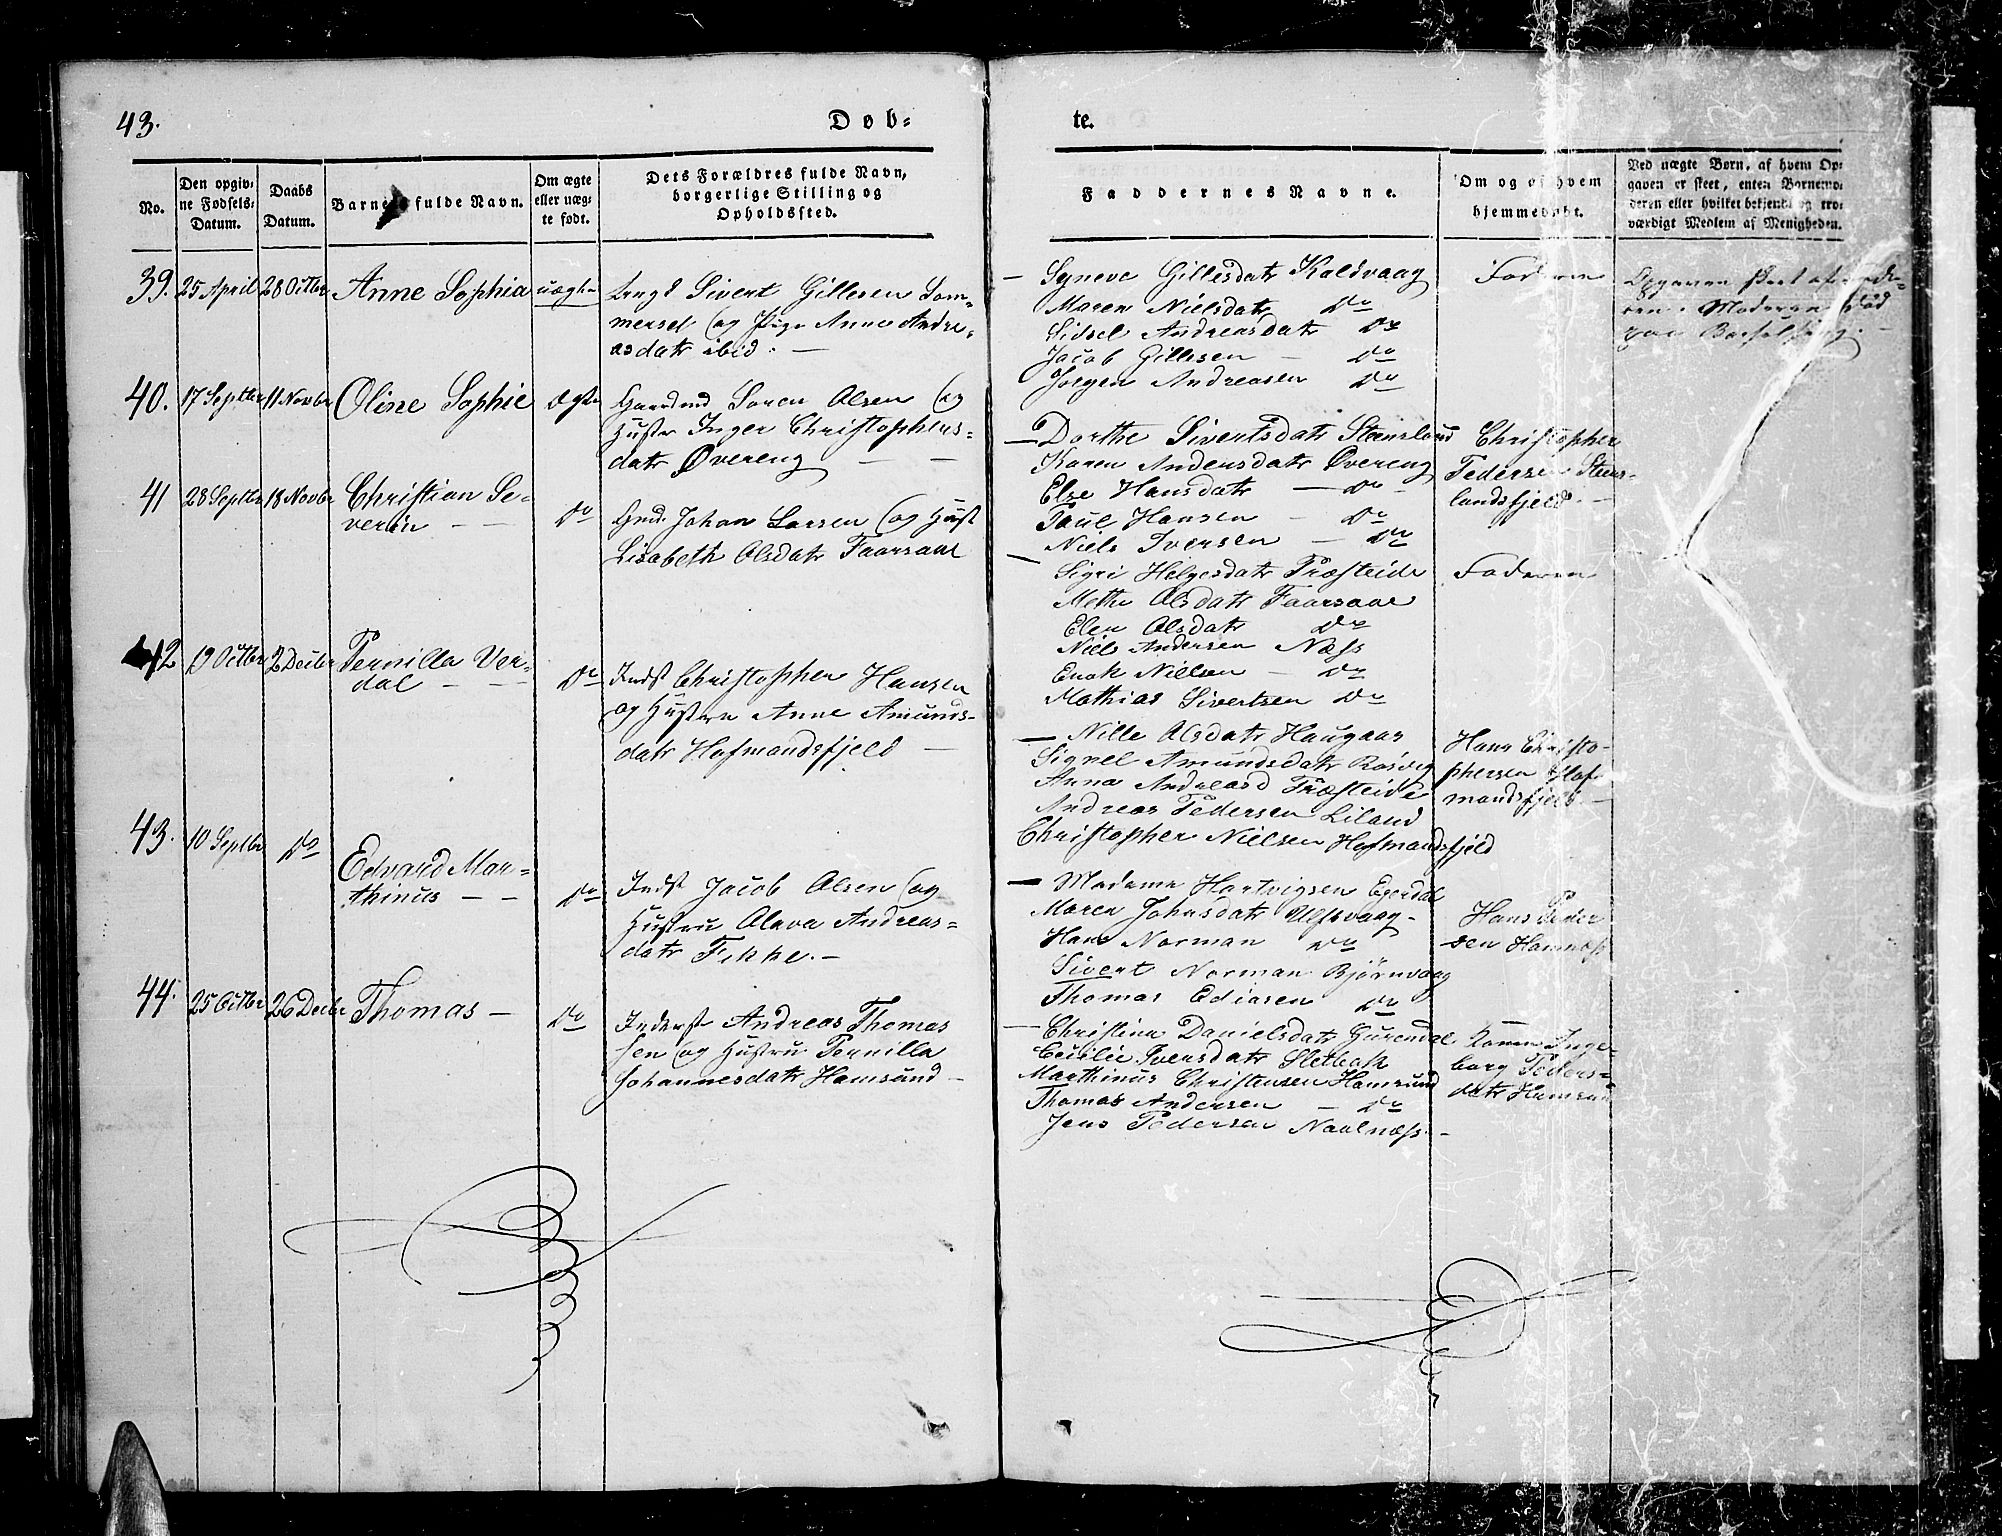 43.
Døb-
te.
No.
Den opgiv-
ne Fødsels-
Datum.
Daabs
Datum.
Barnets fulde Navn.
Om ægte
eller uæg-
te født.
Dets Forældres fulde Navn,
borgerlige Stilling og
Opholdssted.
Faddernes Navne.
Om og af hvem
hjemmedøbt.
Ved uægte Børn, af hvem Op-
gaven er skeet, enten Barnemo-
deren eller hvilket bekjendt og tro-
værdigt Medlem af Menigheden.
39. 25 April 28 Octbr Anne Sophia uægte
Ungk Sivert Gillesen Som-
mersel og Pige Anne Andre-
asdatr ibid. —
— Syneve Gillesdatr Kaldvaag
Maren Nielsdatr Do
Sidsel Andreasdatr Do
Jacob Gillesen — Do
Jørgen Andreasen Do
Faderen
Opgaven skeet af Fade-
ren, Moderen død
paa Barselseng. —
40. 17 Septbr 11 Novbr Oline Sophie ægte
Gaardmd Søren Olsen og
Hustr Inger Christophers-
datr Øvereng — —
— Dorthe Sivertsdatr Steensland
Karen Andersdatr Øvereng
Else Hansdatr — Do -
Paul Hansen — Do
Niels Iversen — Do
Christopher
Pedersen Steens-
landsfjeld. -
41 28 Septbr 18 Novbr Christian Se-
verin — —
Do
Gmd. Johan Larsen og Hust
Lisabeth Olsdatr Faarsaae
— Sigri Helgesdatr Træsteide
Methe Olsdatr Faarsaae
Elen Olsdatr Do
Niels Andersen Næss
Enok Nielsen — Do
Mathias Sivertsen Do
Faderen
42 19 Octbr 2 Decbr Pernilla Ver-
dal — —
Do
Indst Christopher Hansen
og Hustru Anne Amunds-
datr Hofmandsfjeld —
— Nille Olsdatr Haugaas
Signel Amundsdatr Rosvig
Anna Andreasd Træsteide
Andreas Pedersen Liland
Christopher Nielsen Hofmandsfjeld
Hans Christo-
phersen Hof-
mandsfjeld —
43. 10 Septbr Do
Edvard Mar-
thinus — -
Do
Indst Jacob Olsen og
Hustru Olava Andreas-
datr Fikke. —
— Madame Hartvigsen Egerdal
Maren Johnsdatr Ulfsvaag -
Hans Norman Do
Sivert Norman Bjørnvaag
Thomas Ediasen Do
Hans Peder
sen Hamnæss
44. 25 Octbr 26 Decbr Thomas —
Do
Inderst Andreas Thomas
sen og Hustru Pernilla
Johannesdatr Hamsund —
— Christina Danielsdatr Gurendal
Cecilie Iversdatr Sletbak
Marthinus Christensen Hamsund
Thomas Andersen — Do
Jens Pedersen Naalnæss. -
Konen Inge-
borg Peders-
datr Hamsun